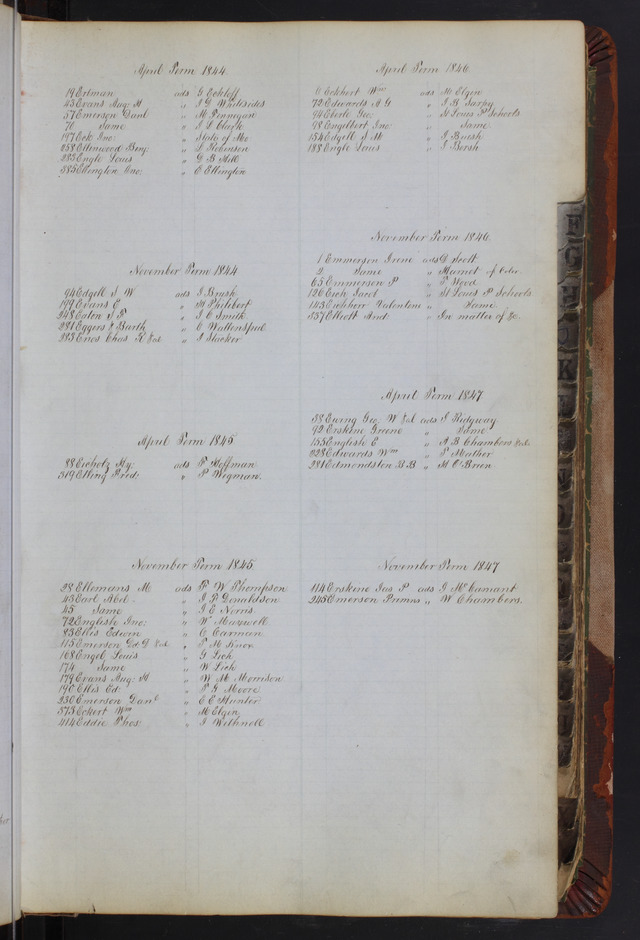 April Term 1844
14 Erlman ads G Eckloff
43 Evans Aug. H " J G Whitesides
57 Emerson Danl " M Finnegan
76 Same " J L Clark
197 Eck Jno: " State of Mo
258 Ellenwood Benj. " L Robinson
283 Engle Louis " G B Hill
385 Ellington Jno: " E Ellington
November Term 1844
94 Edgell S W ads J Brush
199 Evans E " M Philibert
248 Eaton J P " J C Smith
281 Eggers & Barth " C Wattenspiel
283 Enos Chas R &al " J Stacker
April Term 1845
88 Eicholz Hy. ads F Hoffman
319 Elling Fred: " P Wigman
November Term 1845
28 Ellemans M ads F W Thompson
43 Earl Abel " J P Donaldson
45 Same " J E Norris
72 English Jno: " W Maxwell
83 Ellis Edwin " C Carman
115 Emerson &al " F M Knox
168 Engel Louis " G Lick
174 Same " W Lick
179 Evans Aug: H " W M Morrison
190 Ellis Ed: " P G Moore
250 Emerson Danl " E E Hunter
373 Eckert Wm " M Elgin
414 Eddie Thos: " J Withnell
April Term 1846
6 Eckhert Wm ads M Elgin
72 Edwards A G " J B Sarpy
94 Eberle Geo: " St Louis P Schools
98 Engelbert Jno: " Same
154 Edgell S M " J Brush
188 Engle Louis " J Borsh
November Term 1846
1 Emmerson Irene ads D Scott
2 Same " Harriet of Color
65 Emmerson P " T Wood
126 Eich Jacob " St Louis P Schools
143 Eichherr Valentine " Same
337 Elliott And: " In matter of &c.
April Term 1847
38 Ewing Geo. W &al ads J Ridgway
92 Erskine Greene " Same
155 English E " A B Chambers &al
228 Edwards Wm " P Mather
281 Edmondston B B " M O'Brien
November Term 1847
114 Erskine Jas P ads J McCamant
245 Emerson Primus " W Chambers
F
G
H
K